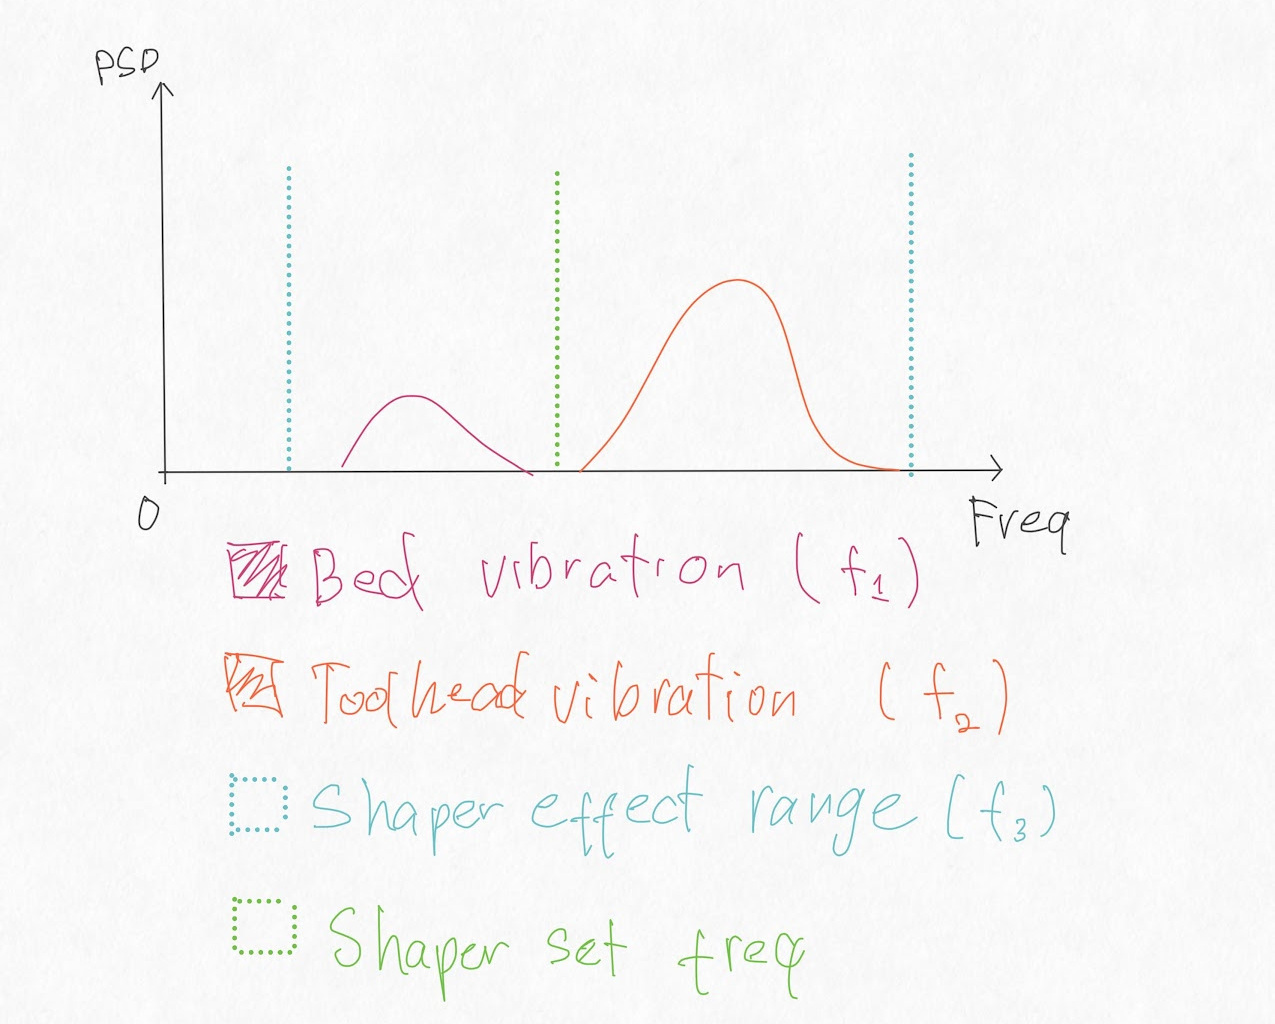 PSD
0
Freq
Bed vibration (f1)
Toolhead vibration (f2)
Shaper effect range (f3)
Shaper set freq